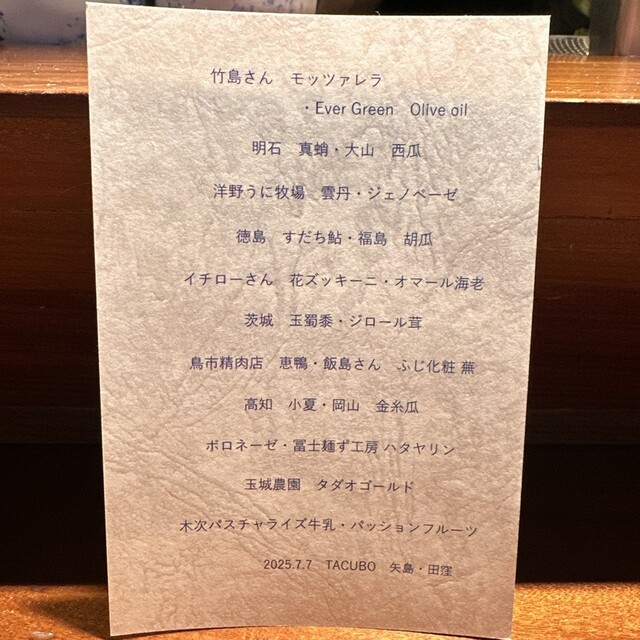 竹島さん　モッツァレラ
・Ever Green　Olive oil
明石　真蛸・大山　西瓜
洋野うに牧場　雲丹・ジェノベーゼ
徳島　すだち鮎・福島　胡瓜
イチローさん　花ズッキーニ・オマール海老
茨城　玉蜀黍・ジロール茸
鳥市精肉店　恵鴨・飯島さん　ふじ化粧 蕪
高知　小夏・岡山　金糸瓜
ボロネーゼ・冨士麺ず工房 ハタヤリン
玉城農園　タダオゴールド
木次パスチャライズ牛乳・パッションフルーツ
2025.7.7　TACUBO　矢島・田窪